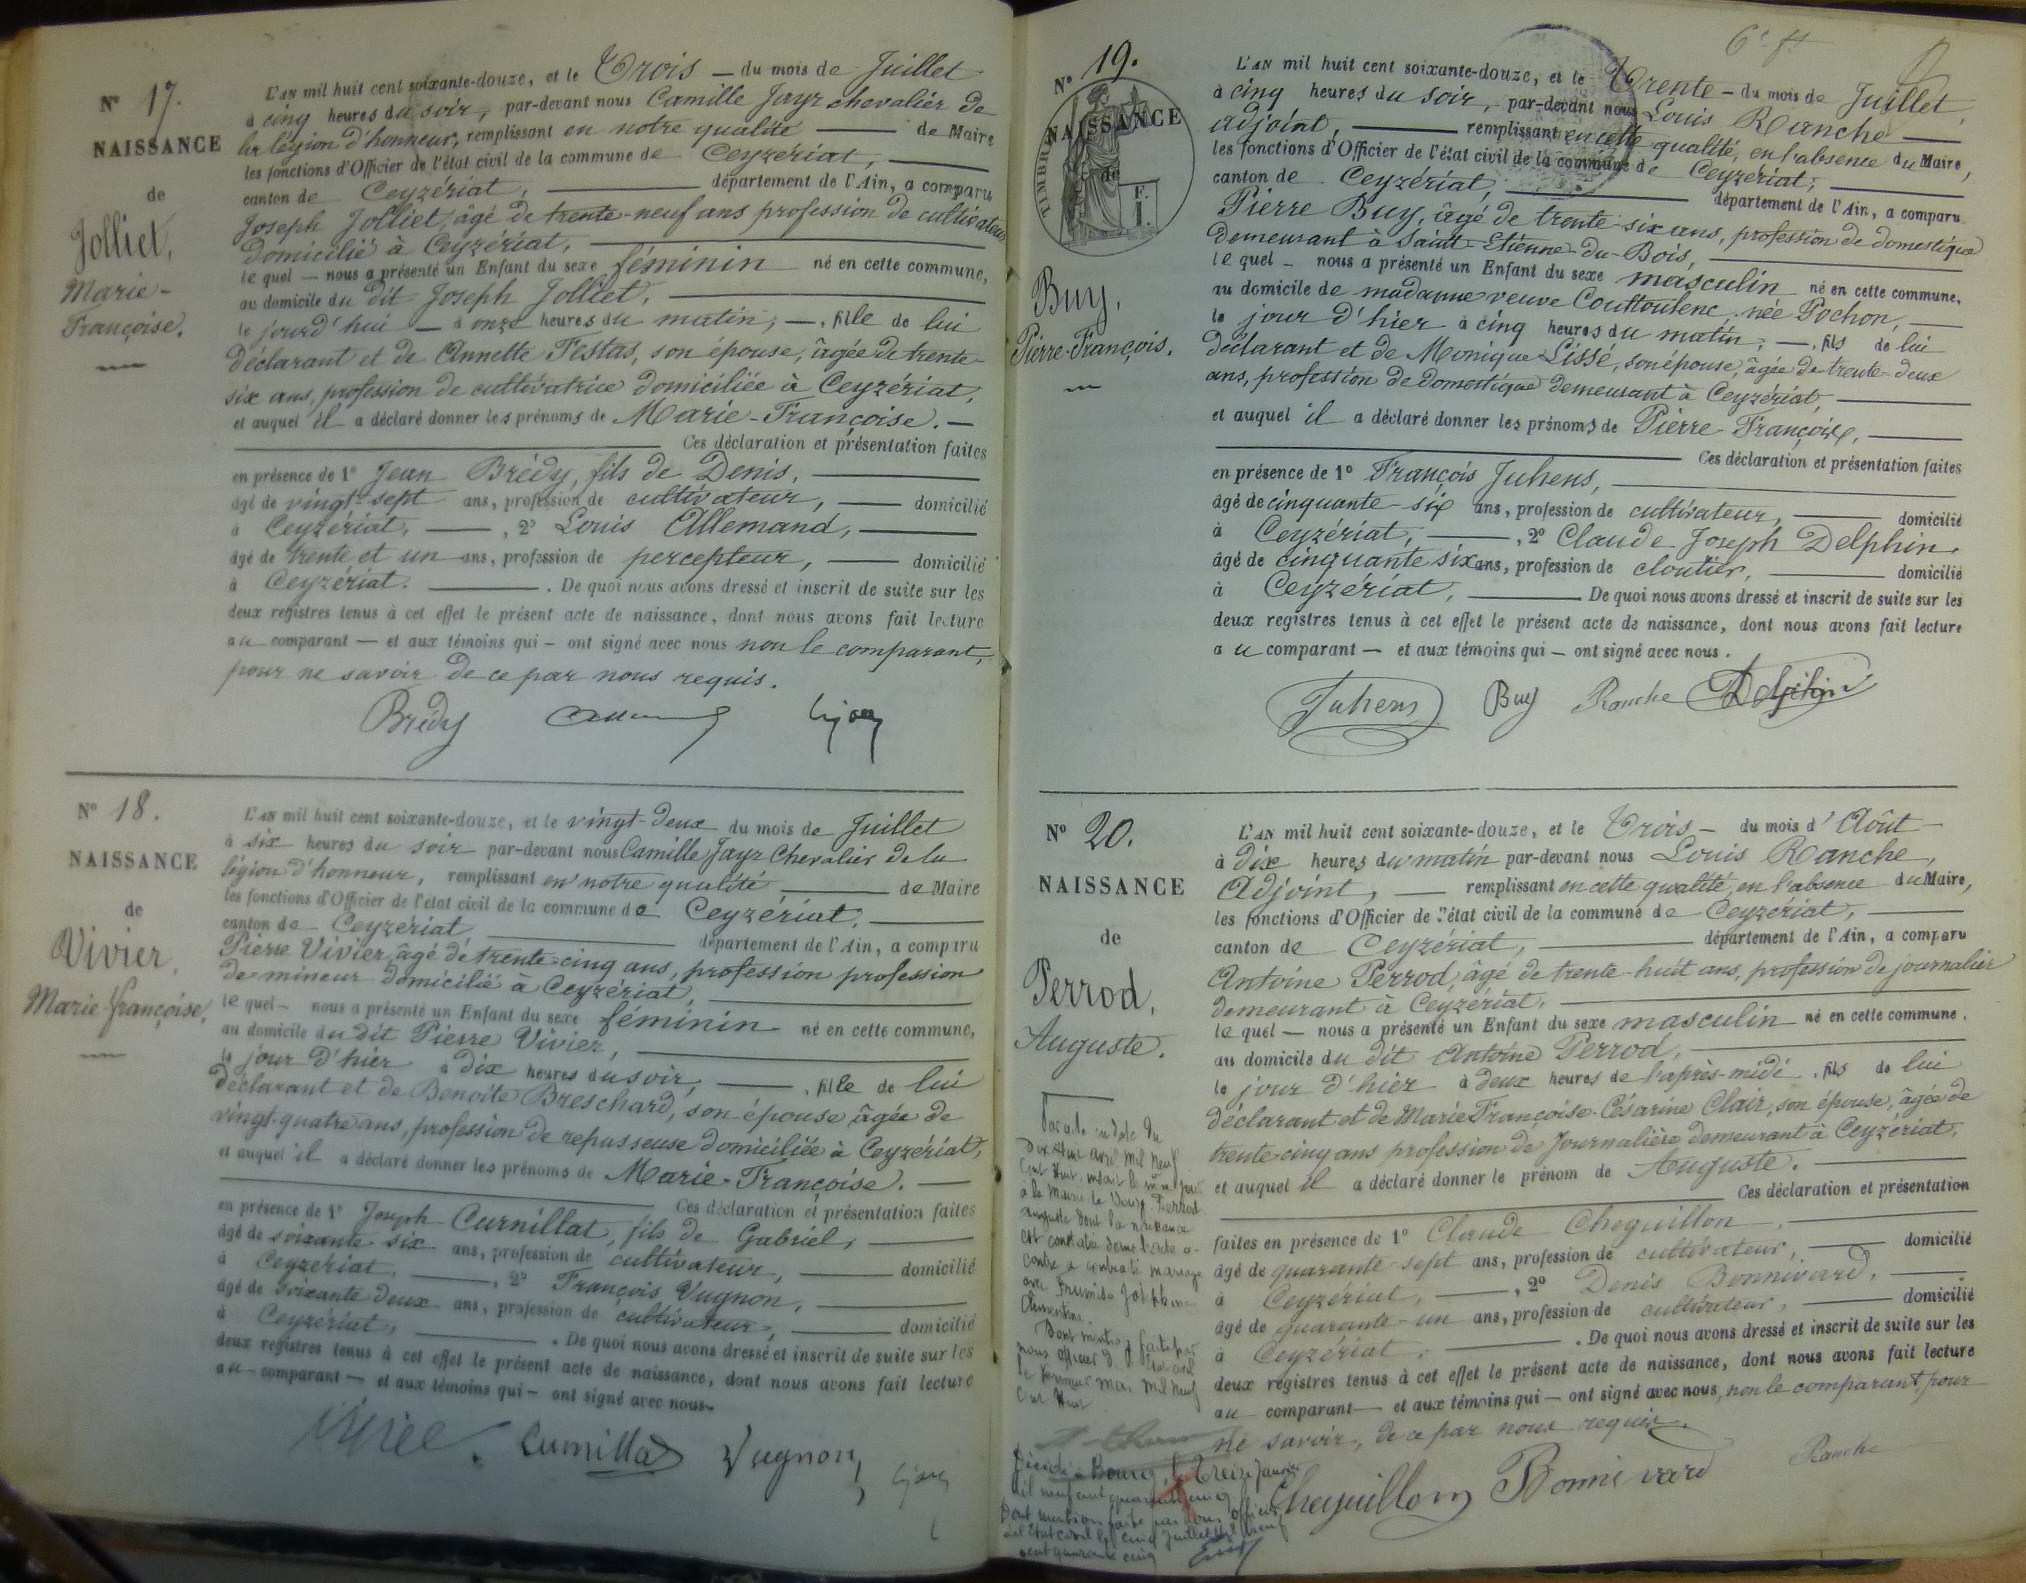 Nº 17.
NAISSANCE
de
Jolliet,
Marie-
Françoise.
L'AN mil huit cent soixante-douze, et le Trois — du mois de Juillet
à cinq heures du soir, par-devant nous Camille Jayr chevalier de
la légion d'honneur, remplissant en notre qualité — de Maire
les fonctions d'Officier de l'état civil de la commune de Ceyzériat,
canton de Ceyzériat, — département de l'Ain, a comparu
Joseph Jolliet, âgé de trente-neuf ans profession de cultivateur
domicilié à Ceyzériat,
le quel — nous a présenté un Enfant du sexe féminin né en cette commune,
au domicile du dit Joseph Jolliet,
le jourd'hui — à onze heures du matin, —, fille de lui
déclarant et de Annette Festas, son épouse, âgée de trente-
six ans, profession de cultivatrice domiciliée à Ceyzériat,
et auquel il a déclaré donner les prénoms de Marie-Françoise. —
Ces déclaration et présentation faites
en présence de 1º Jean Brédy, fils de Denis,
âgé de vingt-sept ans, profession de cultivateur, — domicilié
à Ceyzériat, —, 2º Louis Allemand,
âgé de trente et un ans, profession de percepteur, — domicilié
à Ceyzériat. — . De quoi nous avons dressé et inscrit de suite sur les
deux registres tenus à cet effet le présent acte de naissance, dont nous avons fait lecture
au comparant — et aux témoins qui — ont signé avec nous non le comparant,
pour ne savoir de ce par nous requis.
Brédy
Nº 18.
NAISSANCE
de
Vivier,
Marie-françoise.
L'AN mil huit cent soixante-douze, et le vingt-deux du mois de Juillet
à six heures du soir par-devant nous Camille Jayr Chevalier de la
légion d'honneur, remplissant en notre qualité — de Maire
les fonctions d'Officier de l'état civil de la commune de Ceyzériat,
canton de Ceyzériat — département de l'Ain, a comparu
Pierre Vivier, âgé de trente-cinq ans, profession profession
de mineur domicilié à Ceyzériat,
le quel — nous a présenté un Enfant du sexe féminin né en cette commune,
au domicile du dit Pierre Vivier,
le jour d'hier à dix heures du soir, —, fille de lui
déclarant et de Benoite Breschard, son épouse âgée de
vingt-quatre ans, profession de repasseuse domiciliée à Ceyzériat,
et auquel il a déclaré donner les prénoms de Marie-Françoise. —
Ces déclaration et présentation faites
en présence de 1º Joseph Curnillat, fils de Gabriel,
âgé de soixante-six ans, profession de cultivateur, — domicilié
à Ceyzériat, —, 2º François Vugnon,
âgé de soixante deux ans, profession de cultivateur, — domicilié
à Ceyzériat, — . De quoi nous avons dressé et inscrit de suite sur les
deux registres tenus à cet effet le présent acte de naissance, dont nous avons fait lecture
au comparant — et aux témoins qui — ont signé avec nous.
Curnillat Vugnon
6e ft
Nº 19.
NAISSANCE
de
TIMBRE
F.
1.
Buy,
Pierre-François.
L'AN mil huit cent soixante-douze, et le Trente — du mois de Juillet,
à cinq heures du soir, par-devant nous Louis Ranche
adjoint, — remplissant en cette qualité, en l'absence du Maire,
les fonctions d'Officier de l'état civil de la commune de Ceyzériat,
canton de Ceyzériat, — département de l'Ain, a comparu
Pierre Buy, âgé de trente-six ans, profession de domestique
demeurant à Saint-Etienne-du-Bois,
le quel — nous a présenté un Enfant du sexe masculin né en cette commune,
au domicile de madame veuve Couttoulenc née Pochon,
le jour d'hier à cinq heures du matin, —, fils de lui
déclarant et de Monique Lissé, son épouse, âgée de trente-deux
ans, profession de domestique demeurant à Ceyzériat,
et auquel il a déclaré donner les prénoms de Pierre-François,
Ces déclaration et présentation faites
en présence de 1º François Juhens,
âgé de cinquante-six ans, profession de cultivateur, — domicilié
à Ceyzériat, —, 2º Claude Joseph Delphin,
âgé de cinquante six ans, profession de cloutier, — domicilié
à Ceyzériat, — De quoi nous avons dressé et inscrit de suite sur les
deux registres tenus à cet effet le présent acte de naissance, dont nous avons fait lecture
au comparant — et aux témoins qui — ont signé avec nous.
Juhens Buy Ranche Delphin
Nº 20.
NAISSANCE
de
Perrod,
Auguste.
L'AN mil huit cent soixante-douze, et le Trois — du mois d'Août —
à dix heures du matin par-devant nous Louis Ranche,
Adjoint, — remplissant en cette qualité, en l'absence du Maire,
les fonctions d'Officier de l'état civil de la commune de Ceyzériat,
canton de Ceyzériat, — département de l'Ain, a comparu
Antoine Perrod, âgé de trente-huit ans, profession de journalier
demeurant à Ceyzériat,
le quel — nous a présenté un Enfant du sexe masculin né en cette commune.
au domicile du dit Antoine Perrod,
le jour d'hier à deux heures de l'après-midi, fils de lui
déclarant et de Marie Françoise-Césarine Clair, son épouse, âgée de
trente-cinq ans profession de Journalière demeurant à Ceyzériat,
et auquel il a déclaré donner le prénom de Auguste.
Ces déclaration et présentation
faites en présence de 1º Claude Cheguillon,
âgé de quarante-sept ans, profession de cultivateur, — domicilié
à Ceyzériat, —, 2º Denis Bonnivard,
âgé de quarante-un ans, profession de cultivateur, — domicilié
à Ceyzériat, — . De quoi nous avons dressé et inscrit de suite sur les
deux registres tenus à cet effet le présent acte de naissance, dont nous avons fait lecture
au comparant — et aux témoins qui — ont signé avec nous, non le comparant, pour
ne savoir, de ce par nous requis.
Cheguillon Bonnivard Ranche
Par acte en date du
Dix Huit avril mil neuf
Cent Huit, inscrit le même jour
à la Mairie le Perrod
auguste dont la naissance
est constatée dans l'acte ci-
contre a contracté mariage
avec Josephine
Clementine.
Dont mention faite par
nous officier d.
le Premier mai mil neuf
Cent Huit
Décédé à Bourg, le Treize Janvier
mil neuf cent quarante cinq
Dont mention faite par nous Officier
de l'Etat civil le cinq Juillet mil neuf
cent quarante cinq